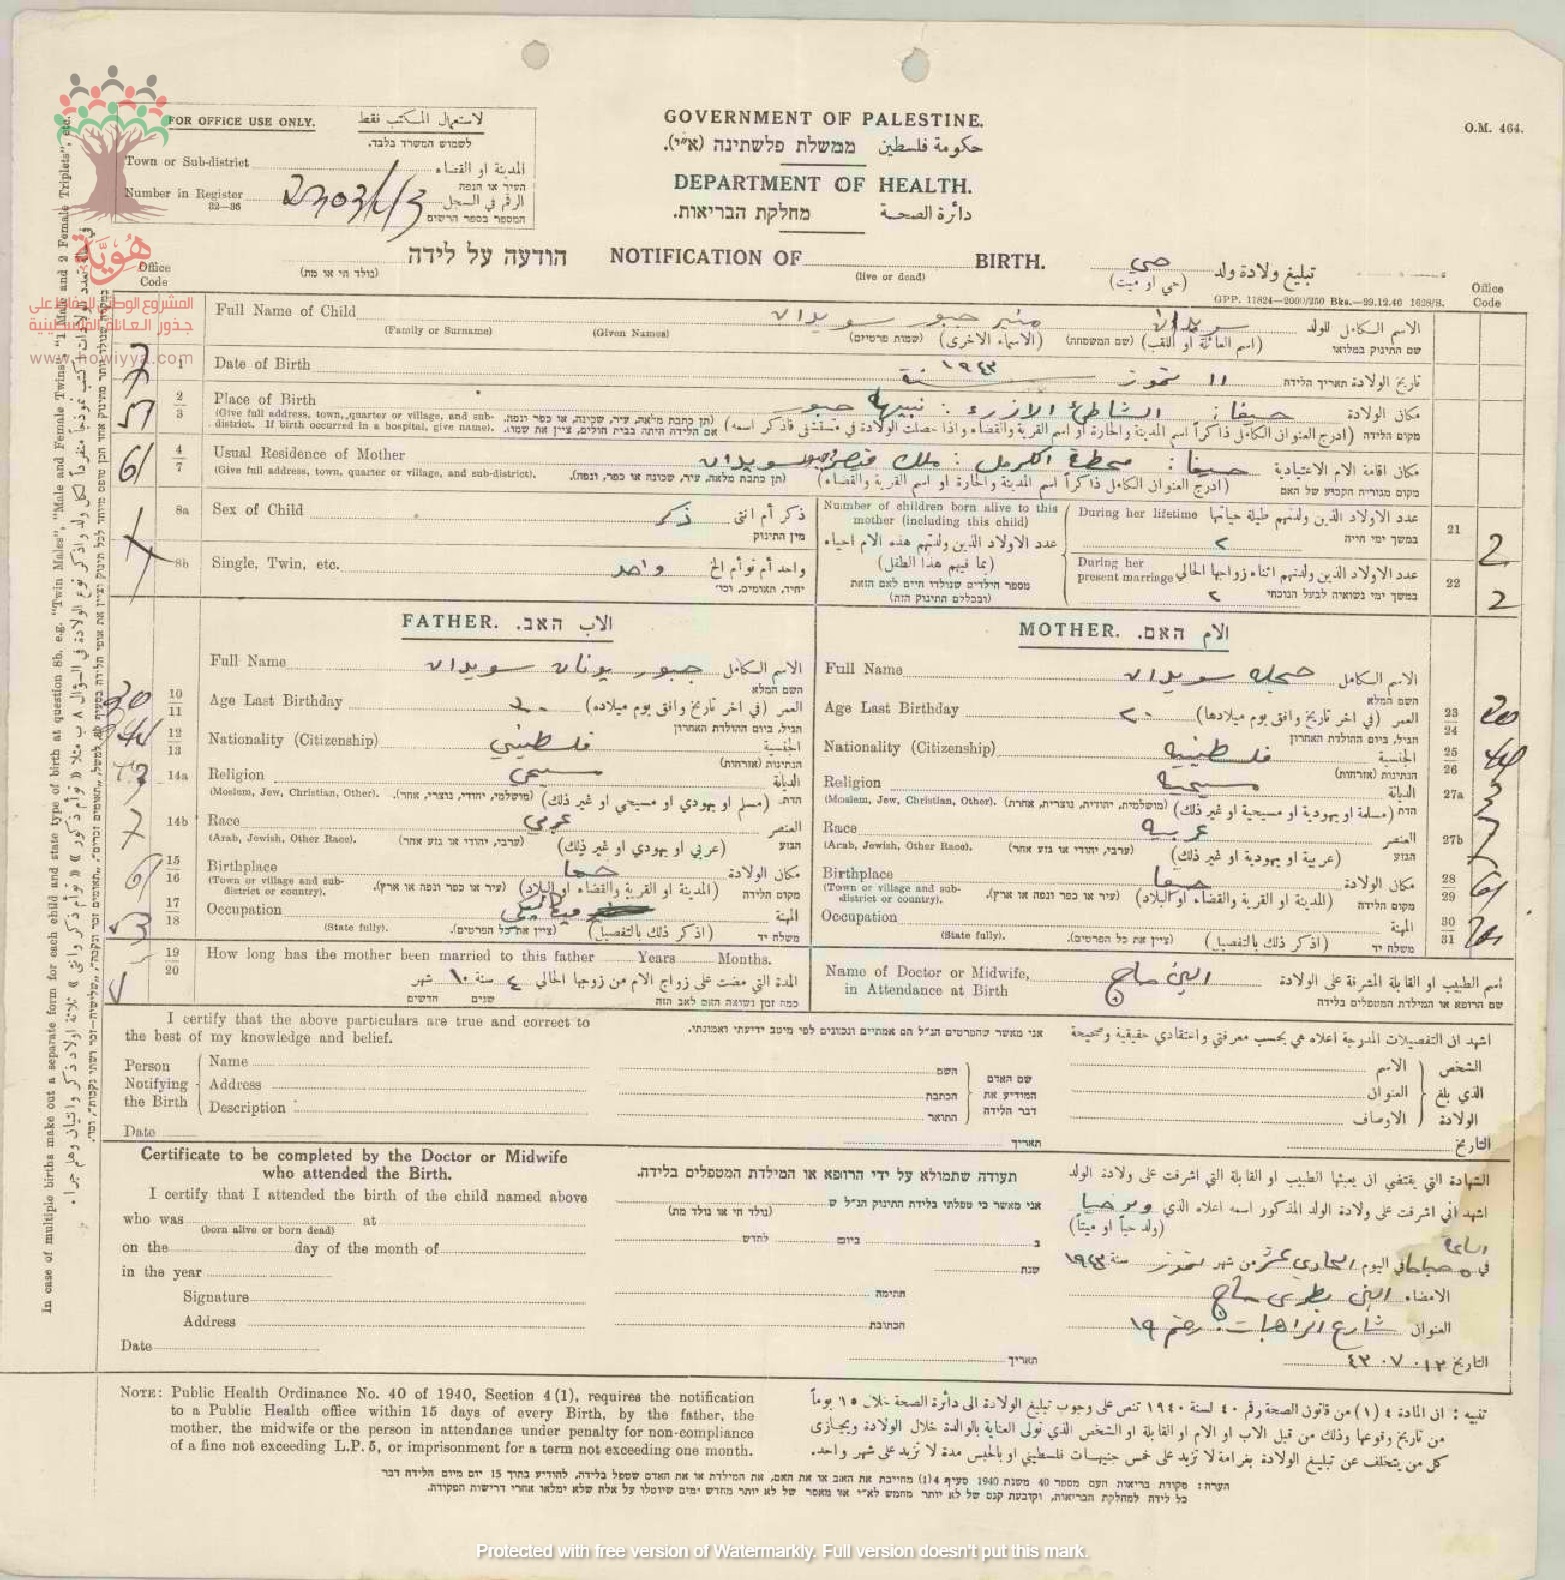 O.M. 464.
FOR OFFICE USE ONLY. لاستعمال المكتب فقط
לשמוש המשרד בלבד.
Town or Sub-district المدينة او القضاء
העיר או הנפה
Number in Register الرقم في السجل
32—36 המספר בספר הרשום
GOVERNMENT OF PALESTINE.
حكومة فلسطين ממשלת פלשתינה (א"י).
DEPARTMENT OF HEALTH.
دائرة الصحة מחלקת הבריאות.
הודעה על לידה NOTIFICATION OF BIRTH. تبليغ ولادة ولد حي
(נולד חי או מת) (live or dead) (حي او ميت)
هُويَّة
المشروع الوطني للحفاظ على
جذور العائلة الفلسطينية
www.howiyya.com
Office Code
GPP. 11824—2000/250 Bks.—29.12.40 1628/S.
Office Code
Full Name of Child منير جبور سويدان سويدان الاسم الكامل للولد
(Family or Surname) (Given Names) (שמות פרטיים) (الاسماء الاخرى) (שם המשפחה) (اسم العائلة او اللقب) שם התינוק במלואו
7 1 Date of Birth ١١ تموز سنة ١٩٤٣ تاريخ الولادة תאריך הלידה
51 2/3 Place of Birth حيفا : الشاطئ الازرق : نبيها جبور مكان الولادة
(Give full address, town, quarter or village, and sub-district. If birth occurred in a hospital, give name). (תן כתבת מלאה, עיר, שכונה, או כפר ונפה. אם הלידה היתה בבית חולים, ציין את שמו). (ادرج العنوان الكامل ذاكراً اسم المدينة والحارة او اسم القرية والقضاء واذا حصلت الولادة في مستشفى فاذكر اسمه) מקום הלידה
61 4/7 Usual Residence of Mother حيفا : محطة الكرمل : ملك سويدان مكان اقامة الام الاعتيادية
(Give full address, town, quarter or village, and sub-district). (תן כתבת מלאה, עיר, שכונה או כפר, ונפה). (ادرج العنوان الكامل ذاكراً اسم المدينة والحارة او اسم القرية والقضاء) מקום מגוריה הקבוע של האם
8a Sex of Child ذكر ذكر أم انثى
מין התינוק
8b Single, Twin, etc. واحد واحد أم توأم الخ
יחיד, תאומים, וכו'
Number of children born alive to this mother (including this child)
عدد الاولاد الذين ولدتهم هذه الام احياء
(بما فيهم هذا الطفل)
מספר הילדים שנולדו חיים לאם הזאת
(ובכללם התינוק הזה)
During her lifetime عدد الاولاد الذين ولدتهم طيلة حياتها 21 2
٢ במשך ימי חייה
During her present marriage عدد الاولاد الذين ولدتهم اثناء زواجها الحالي 22 2
٢ במשך ימי נשואיה לבעל הנוכחי
FATHER. الاب האב.
Full Name جبور يونان سويدان الاسم الكامل
השם המלא
30 10/11 Age Last Birthday ٣٠ العمر (في اخر تاريخ وافق يوم ميلاده)
הגיל, ביום ההולדת האחרון
12/13 Nationality (Citizenship) فلسطيني الجنسية
הנתינות (אזרחות)
14a Religion مسيحي الديانة
(Moslem, Jew, Christian, Other). (מושלמי, יהודי, נוצרי, אחר). (مسلم او يهودي او مسيحي او غير ذلك) הדת
7 14b Race عربي العنصر
(Arab, Jewish, Other Race). (ערבי, יהודי או גזע אחר) (عربي او يهودي او غير ذلك) הגזע
61 15/16 Birthplace حيفا مكان الولادة
(Town or village and sub-district or country). (עיר או כפר ונפה או ארץ). (المدينة او القرية والقضاء او البلاد) מקום הלידה
53 17/18 Occupation ميكانيكي المهنة
(State fully). (ציין את כל הפרטים). (اذكر ذلك بالتفصيل) משלח יד
19/20 How long has the mother been married to this father Years Months.
المدة التي مضت على زواج الام من زوجها الحالي ٤ سنة ١٠ شهر
כמה זמן נשואה האם לאב הזה שנים חדשים
MOTHER. الام האם.
Full Name سويدان الاسم الكامل
השם המלא
Age Last Birthday ٢٠ العمر (في اخر تاريخ وافق يوم ميلادها) 23/24 20
הגיל, ביום ההולדת האחרון
Nationality (Citizenship) فلسطينيه الجنسية 25/26
הנתינות (אזרחות)
Religion مسيحيه الديانة 27a 3
(Moslem, Jew, Christian, Other) (מושלמית, יהודית, נוצרית, אחרת). (مسلمة او يهودية او مسيحية او غير ذلك) הדת
Race عربيه العنصر 27b 7
(Arab, Jewish, Other Race). (ערבי, יהודי או גזע אחר) (عربية او يهودية او غير ذلك) הגזע
Birthplace حيفا مكان الولادة 28/29 61
(Town or village and sub-district or country). (עיר או כפר ונפה או ארץ). (المدينة او القرية والقضاء او البلاد) מקום הלידה
Occupation المهنة 30/31
(State fully). (ציין את כל הפרטים). (اذكر ذلك بالتفصيل) משלח יד
Name of Doctor or Midwife, الين حاج اسم الطبيب او القابلة المشرفة على الولادة
in Attendance at Birth שם הרופא או המילדת המטפלים בלידה
I certify that the above particulars are true and correct to the best of my knowledge and belief.
אני מאשר שהפרטים הנ"ל הם אמתיים ונכונים לפי מיטב ידיעתי ואמונתי.
اشهد ان التفصيلات المدوجة اعلاه هي بحسب معرفتي واعتقادي حقيقية وصحيحة
Person Notifying the Birth
Name השם الاسم
Address הכתבת العنوان
Description התואר الاوصاف
שם האדם המודיע את דבר הלידה
الشخص الذي بلغ الولادة
Date תאריך التاريخ
Certificate to be completed by the Doctor or Midwife who attended the Birth.
I certify that I attended the birth of the child named above
who was at
(born alive or born dead)
on the day of the month of
in the year
Signature
Address
Date
תעודה שתמולא על ידי הרופא או המילדת המטפלים בלידה.
אני מאשר כי טפלתי בלידת התינוק הנ"ל ש
(נולד חי או נולד מת)
ב ביום לחדש
שנת
חתימה
הכתובת
תאריך
الشهادة التي يقتضي ان يعبئها الطبيب او القابلة التي اشرفت على ولادة الولد
اشهد اني اشرفت على ولادة الولد المذكور اسمه اعلاه الذي ولد حيا
(ولد حياً او ميتاً)
الساعة
في ٥ صباحا في اليوم الحادي عشر من شهر تموز سنة ١٩٤٣
الامضاء الين بطرس حاج
العنوان شارع الراهبات رقم ١٩
التاريخ ١٢ . ٧ . ٤٣
NOTE: Public Health Ordinance No. 40 of 1940, Section 4 (1), requires the notification
to a Public Health office within 15 days of every Birth, by the father, the
mother, the midwife or the person in attendance under penalty for non-compliance
of a fine not exceeding L.P. 5, or imprisonment for a term not exceeding one month.
تنبيه : ان المادة ٤ (١) من قانون الصحة رقم ٤٠ لسنة ١٩٤٠ تنص على وجوب تبليغ الولادة الى دائرة الصحة خلال ١٥ يوماً
من تاريخ وقوعها وذلك من قبل الاب او الام او القابلة او الشخص الذي تولى العناية بالوالدة خلال الولادة ويجازى
كل من يتخلف عن تبليغ الولادة بغرامة لا تزيد على خمس جنيهات فلسطيني او بالحبس مدة لا تزيد على شهر واحد.
הערה : פקודת בריאות העם מספר 40 משנת 1940 סעיף 4(1) מחייבת את האב או את האם, את המילדת או את האדם שטפל בלידה, להודיע בתוך 15 יום מיום הלידה דבר
כל לידה למחלקת הבריאות, וקובעת קנס של לא יותר מחמש לא"י או מאסר של לא יותר מחדש ימים שיוטלו על אלה שלא ימלאו אחרי דרישות הפקודה.
In case of multiple births make out a separate form for each child and state type of birth at question 8b, e.g. "Twin Males", "Male and Female Twins", "1 Male and 2 Female Triplets", etc.
Protected with free version of Watermarkly. Full version doesn't put this mark.